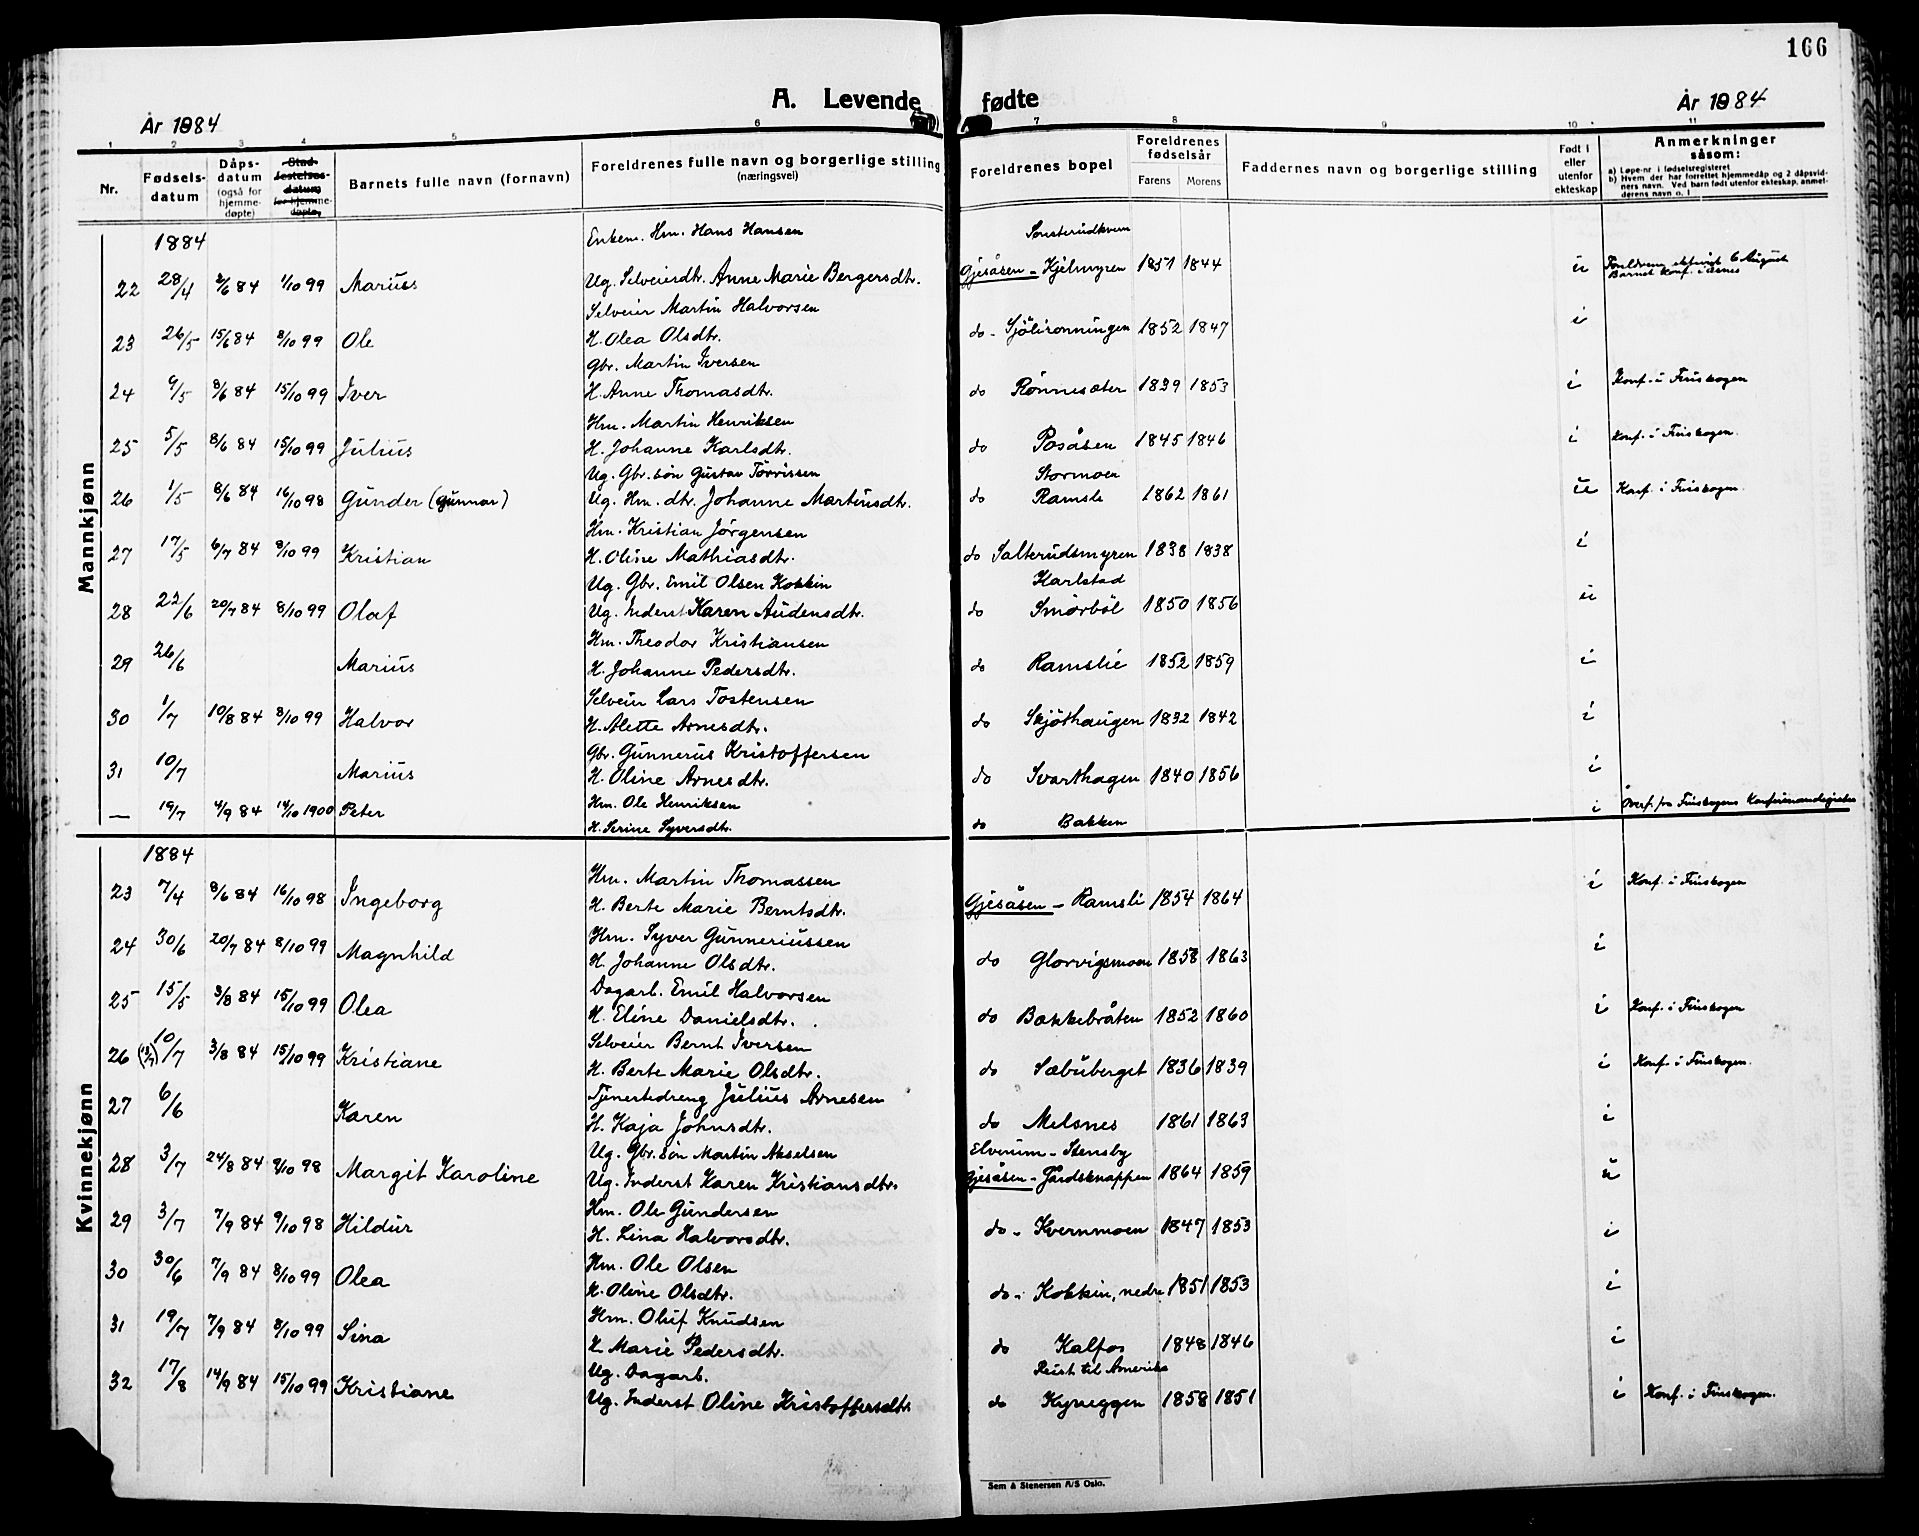 166
A. Levende fødte
År 1884
År 1884
1 2 3 4 5 6 7 8 9 10 11
Nr. Fødsels-datum Dåps-datum (også for hjemme-døpte) Stad-festelses-datum for hjemme-døpte. Barnets fulle navn (fornavn) Foreldrenes fulle navn og borgerlige stilling (næringsvei) Foreldrenes bopel Foreldrenes fødselsår Farens Morens Faddernes navn og borgerlige stilling Født i eller utenfor ekteskap Anmerkninger såsom: a) Løpe-nr i fødselsregisteret b) Hvem der har forrettet hjemmedåp og 2 dåpsvidners navn. Ved barn født utenfor ekteskap, anmelderens navn o. l
Mannkjønn
1884 Enkem. Hm. Hans Hansen Sønsterudkvern
22 28/4 3/6 84 1/10 99 Marius Ug. Selveierdtr. Anne Marie Bergersdtr. Gjesåsen - Kjelmyren 1851 1844 u Foreldrene ektevigt 6 August
Barnet konf. i Åsnes
Selveier Martin Halvorsen
23 26/5 15/6 84 8/10 99 Ole H. Olea Olsdtr. do - Sjølirønningen 1852 1847 i
Gbr. Martin Iversen
24 9/5 8/6 84 15/10 99 Iver H. Anne Thomasdtr. do Rønnesæter 1839 1853 i Konf. i Finskogen
Hm. Martin Henriksen
25 5/5 8/6 84 15/10 99 Julius H. Johanne Karlsdtr. do Posåsen 1845 1846 i Konf. i Finskogen.
Ug. Gbr. søn Gustav Tørrissen Stormoen
26 1/5 8/6 84 16/10 98 Gunder (Gunnar) Ug. Hm. dtr. Johanne Martinsdtr. do Ramsli 1862 1861 u Konf. i Finskogen.
Hm. Kristian Jørgensen
27 17/5 6/7 84 8/10 99 Kristian H. Oline Mathiasdtr. do Salterudsmyren 1838 1838 i
Ug. Gbr. Emil Olsen Kokkin Karlstad
28 22/6 20/7 84 8/10 99 Olaf Ug. Inderst Karen Audensdtr. do Smørbøl 1850 1856 u
Hm. Theodor Kristiansen
29 26/6 Marius H. Johanne Pedersdtr. do Ramslie 1852 1859 i
Selveier Lars Tostensen
30 1/7 10/8 84 8/10 99 Halvor H. Alette Arnesdtr. do Skjøthaugen 1832 1842 i
Gbr. Gunnerus Kristoffersen
31 10/7 Marius H. Oline Arnesdtr. do Svarthagen 1840 1856 i
— 19/7 4/9 84 14/10 1900 Peter Hm. Ole Henriksen i Overf. fra Finskogens Konfirmandregister
H. Serine Syversdtr. do Bakken
Kvinnekjønn
1884 Hm. Martin Thomassen
23 7/4 8/6 84 16/10 98 Ingeborg H. Berte Marie Berntsdtr. Gjesåsen - Ramsli 1854 1864 i Konf. i Finskogen
Hm. Syver Gunneriussen
24 30/6 20/7 84 8/10 99 Magnhild H. Johanne Olsdtr. do Glorvigsmoen 1858 1863 i
Dagarb. Emil Halvorsen
25 15/5 3/8 84 15/10 99 Olea H. Eline Danielsdtr. do Bakkebråten 1852 1860 i Konf. i Finskogen
Selveier Bernt Iversen
26 (13/7) 10/7 3/8 84 15/10 99 Kristiane H. Berte Marie Olsdtr. do Sæbuberget 1836 1839 i Konf. i Finskogen.
Tjenestedreng Julius Arnesen
27 6/6 Karen H. Kaja Johnsdtr. do Melsnes 1861 1863 i
Ug. Gbr. søn Martin Akselsen Elverum - Stensby
28 3/7 24/8 84 9/10 98 Margit Karoline Ug. Inderst Karen Kristiansdtr. Gjesåsen - Gårdsknappen 1864 1859 u
Hm. Ole Gundersen
29 3/7 7/9 84 9/10 98 Hildur H. Lina Halvorsdtr. do - Kvernmoen 1847 1853 i
Hm. Ole Olsen
30 30/6 7/9 84 8/10 99 Olea H. Oline Olsdtr. do - Kokkin, nedre 1851 1853 i
Hm. Oluf Knudsen
31 19/7 7/9 84 8/10 99 Sina H. Marie Pedersdtr. do Kalfos 1848 1846 i
Ug. Dagarb. Reist til Amerika
32 17/8 14/9 84 15/10 99 Kristiane Ug. Inderst Oline Kristoffersdtr. do Kyneggen 1858 1851 i Konf. i Finskogen.
Sem & Stenersen A/S Oslo.